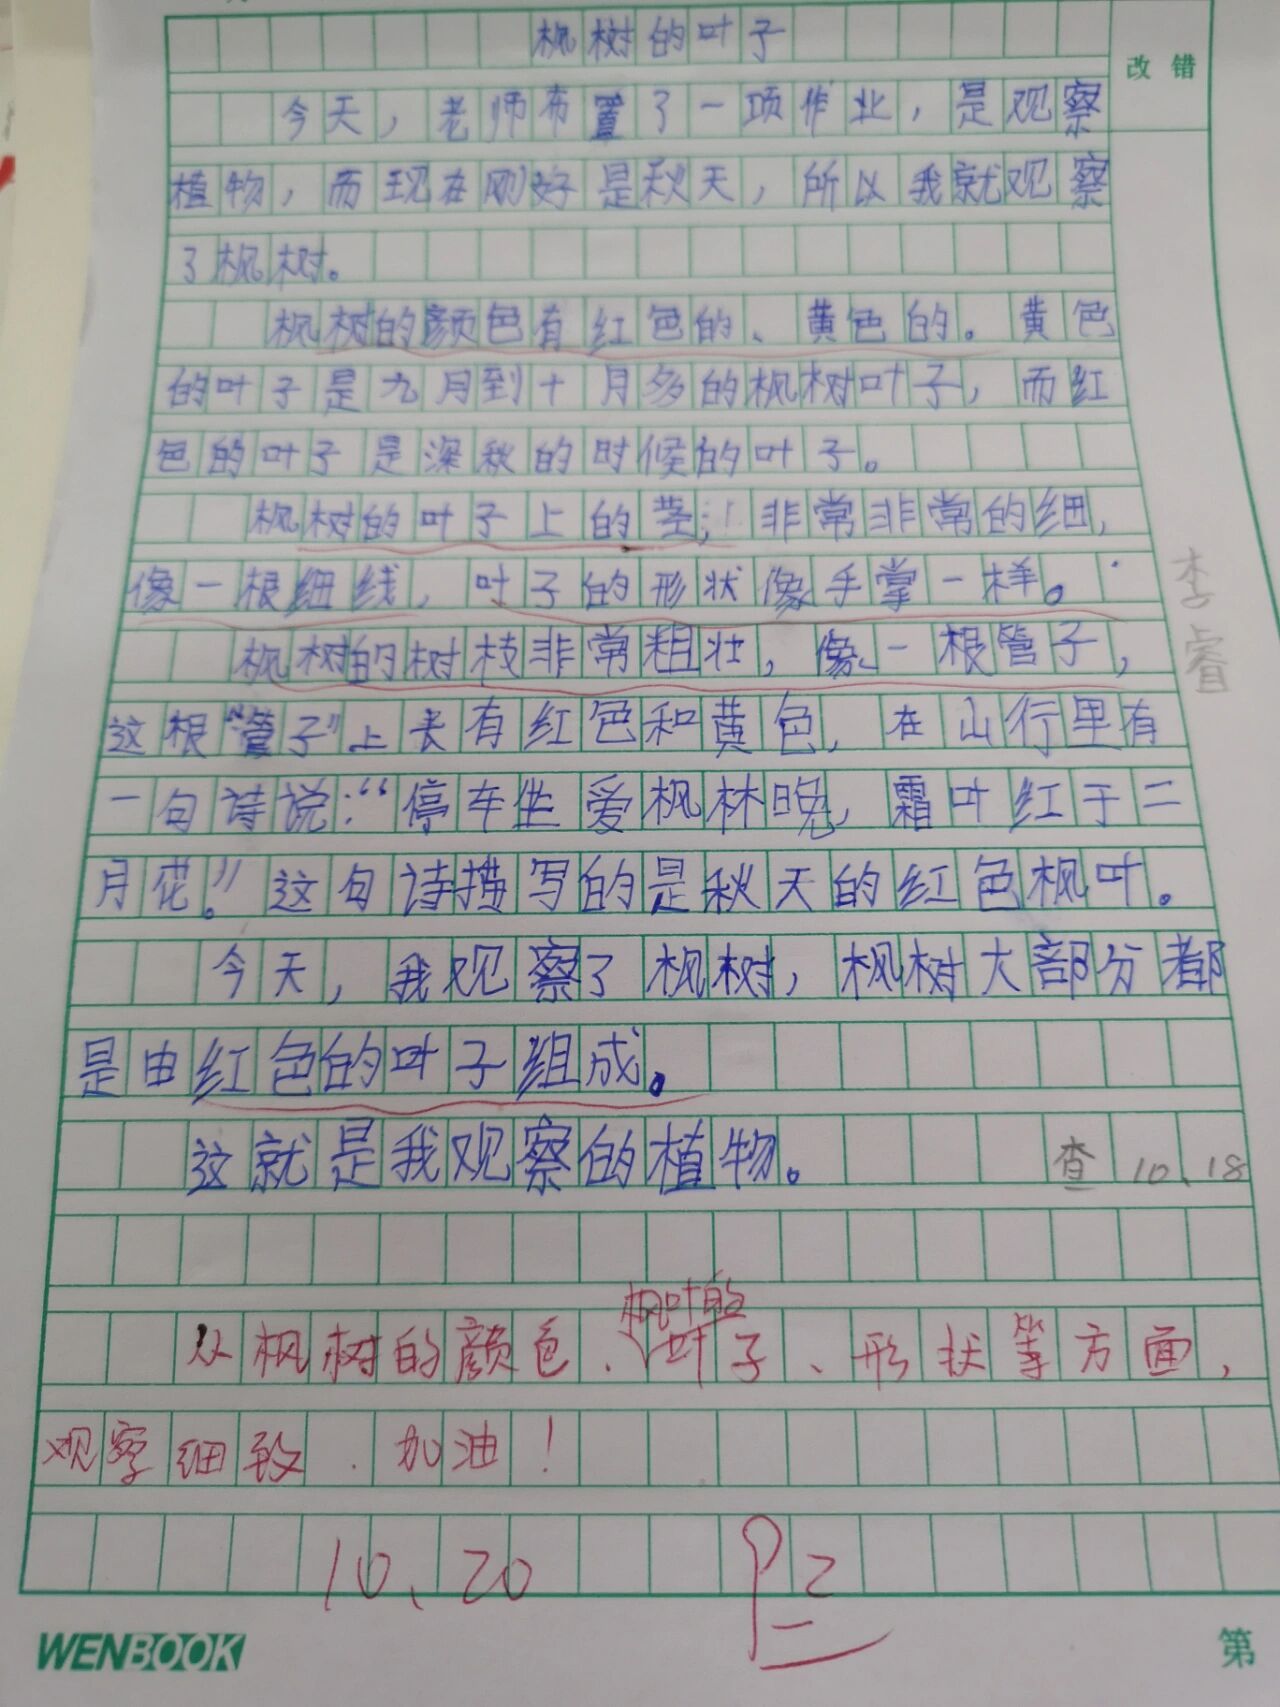 枫树的叶子
改错
今天，老师布置了一项作业，是观察
植物，而现在刚好是秋天，所以我就观察
了枫树。
枫树的颜色有红色的、黄色的。黄色
的叶子是九月到十月多的枫树叶子，而红
色的叶子是深秋的时候的叶子。
枫树的叶子上的茎，非常非常的细，
像一根细线，叶子的形状像手掌一样。
李睿
枫树的树枝非常粗壮，像一根管子，
这根“管子”上长有红色和黄色，在山行里有
一句诗说：“停车坐爱枫林晚，霜叶红于二
月花。”这句诗描写的是秋天的红色枫叶。
今天，我观察了枫树，枫树大部分都
是由红色的叶子组成。
这就是我观察的植物。
查 10.18
枫叶的
从枫树的颜色、叶子、形状等方面，
观察细致.加油！
10、20
WENBOOK
第